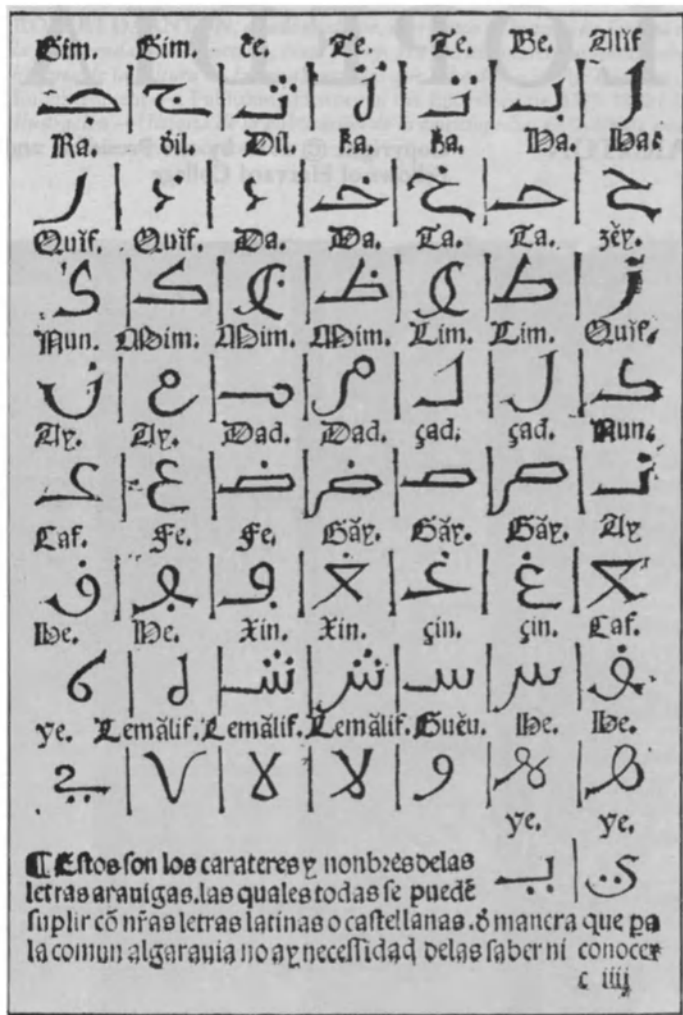 Gim. Gim. c̃e. Te. Te. Be. Alif
ا ب ت ت ث ج ج
Ra. ðil. Dil. ɦa. ɦa. Ha. Haĕ
ح ح خ خ د ذ ر
Quĭf. Quĭf. Da. Da. Ta. Ta. zĕy.
ز ط ط ظ ظ ك ك
Nun. Mim. Mim. Mim. Lim. Lim. Quĭf.
ك ل ل م م م ن
Ay. Ay. Dad. Dad. çad. çad. Nun.
ن ص ص ض ض ع ع
Caf. Fe. Fe. Găy. Găy. Găy. Ay
ع غ غ غ ڢ ڢ ڧ
He. He. Xin. Xin. çin. çin. Caf.
ڧ س س ش ش ه ه
ye. Lemălif. Lemălif. Lemălif. Guĕu. He. He.
ه ه و لا لا لا ي
ye. ye.
ي ي
¶ Estos son los carateres y nonbres delas
letras arauigas. las quales todas se puedẽ
suplir cõ nr̃as letras latinas o castellanas. đ manera que pa
la comun algarauia no ay necessidad delas saber ni conocer
c iiij